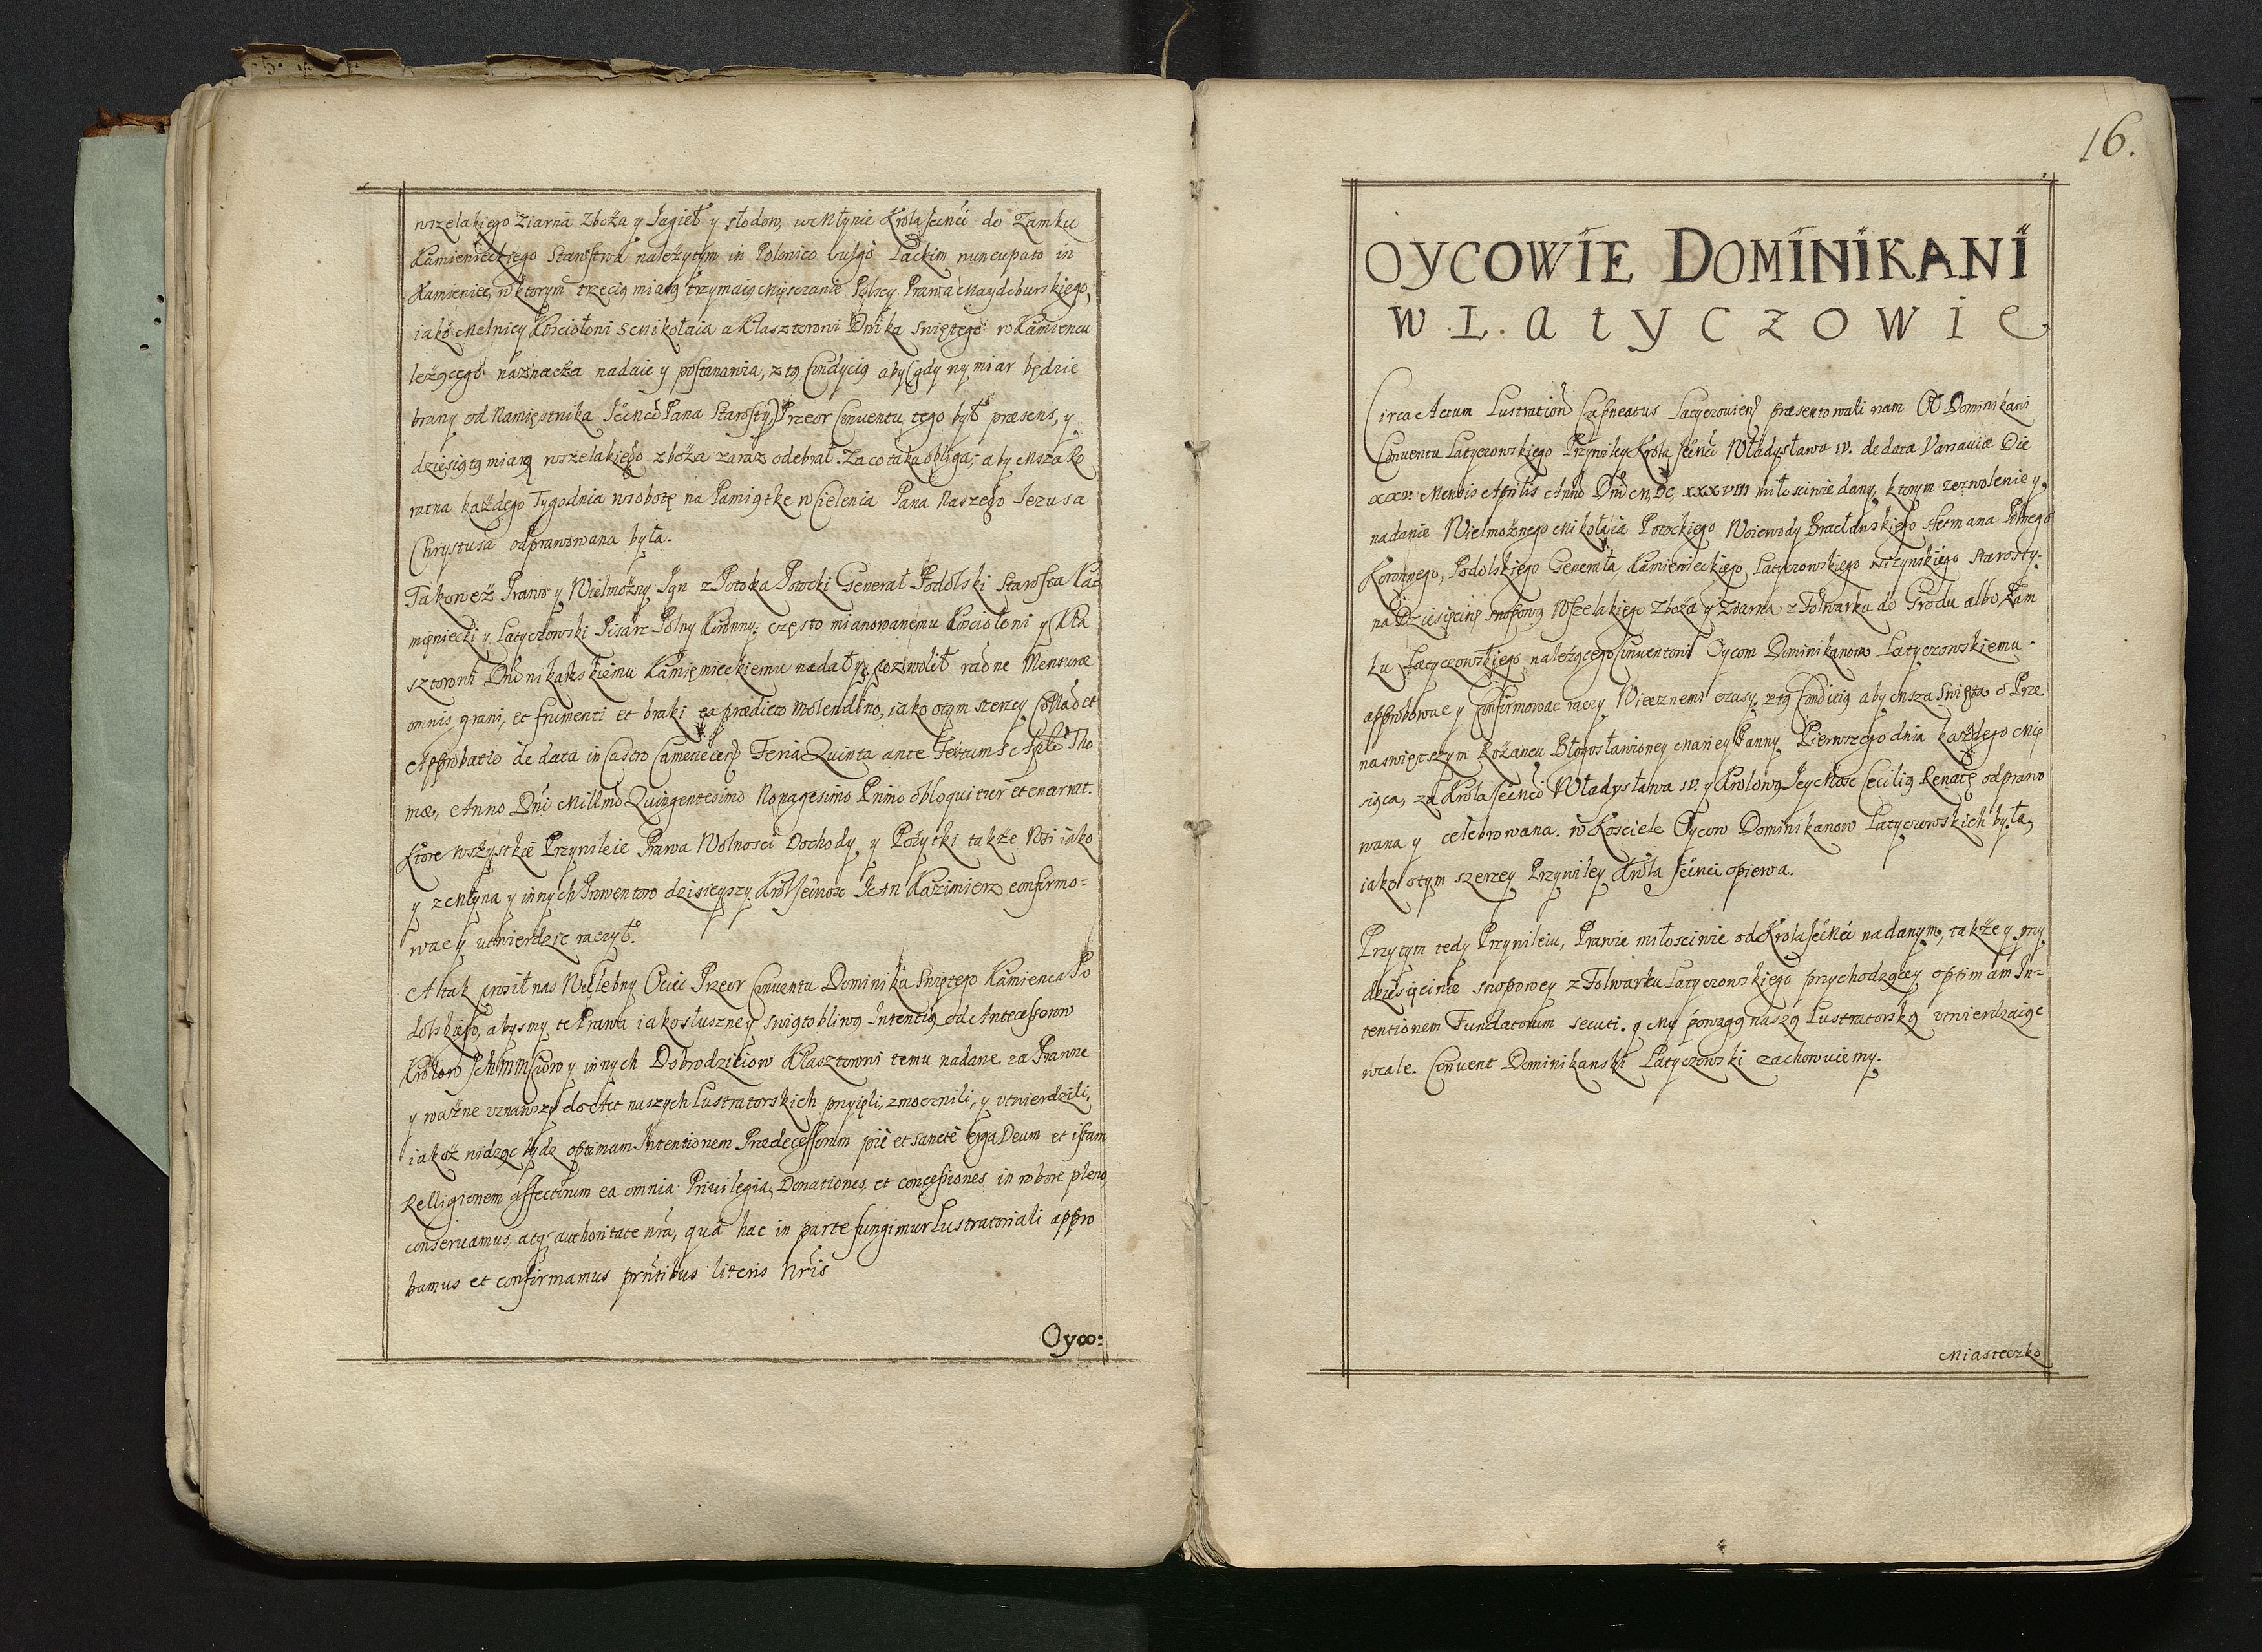 wszelakiego Ziarna Zboża y Jagieł y słodow, we Młynie Krola Jeĝmći do Zamku
Kamienieckiego Starostwa należytym in Polonico vulgo Lackim nuncupato in
Kamieniec, w ktorym trzecią miarę trzymaią Mięsczanie Polscy Prawa Maydeburskiego,
iako Melnicy Kościołowi S Mikołaia a Klasztorowi Dnika Swiętego w Kamiencu
leżącego naznacza nadaie y postanawia, z tą Condycią aby (gdy wymiar będzie
brany od Namięstnika Jeĝmći Pana Starosty) Przeor Conventu tego był præsens, y
dziesiątą miarę wszelakiego zboża zaraz odebrał. Za co taka obliga, aby Msza Ro
ratna każdego Tygodnia w sobotę na Pamiątkę wCielenia Pana Naszego Jezusa
Chrystusa odprawowana była.
Takoweż Prawo y Wielmożny Jan z Potoka Potocki Generał Podolski Starosta Ka
mięniecki y Latyczowski Pisarz Polny Koronny; często mianowanemu Kościołowi y Kla
sztorowi Dominikańskiemu Kamięnieckiemu nadał y pozwolił Mensuræ
omnis grani, et frumenti et braki ex prædicto Molendino, iako otym szerzey et
Approbatio de data in Castro Camenecen Feria Quinta ante Festum S Apli Tho
mæ, Anno Dni Millmo Quingentesimo Nonagesimo Primo obloquitur et enarrat.
Ktore wszystkie Przywileie Prawa Wolnosci Dochody y Pożytki także Wsi iako
y z Młyna y innych Prowentow dzisieyszy Krol Jeĝmość Jan Kazimierz confirmo=
wać y utwierdzić raczył.
A tak prosił nas Wielebny Ociec Przeor Conventu Dominika Swiętego Kamienca Po
dolskiego, abysmy te Prawa iako słuszne y swiątobliwą Intentią od Antecessorow
Krolow Ichmmsciow y innych Dobrodzieiow Klasztorowi temu nadane za Prawne
y ważne uznawszy do Act naszych Lustratorskich przyięli, zmocnili, y utwierdzili,
iakoż widząc tędy optimam Intentionem Prædecessorum piè et sanctè erga Deum et istam
Relligionem affectorum ea omnia Privilegia, Donationes et concessiones in robore pleno
conservamus, atq authoritate nra, quâ hac in parte fungimur Lustratoriali appro
bamus et confirmamus prntibus literis nris
Oyco:
16.
OYCOWIE DOMINIKANI
W. L. a t y c z o w i e
Circa Actum Lustration Capneatus Latyczovien præsentowali nam OO Dominikani
Conventu Latyczowskiego Przywiley Krola Jeĝmći Władysława IV. de data Varsaviæ Die
xxv. Mensis Aprilis Anno Dni M, DC, xxxvIII miłosciwie dany, ktorym zezwolenie y
nadanie Wielmożnego Mikołaia Potockiego Woiewody Bracławskiego Hetmana Polnego
Koronnego, Podolskiego Generała Kamienieckiego Latyczowskiego Niżynskiego Starosty.
na Dziesięcinę snopową Wszelakiego Zboża y Ziarna z Folwarku do Grodu albo Zam
ku Latyczowskiego należącego Conventowi Oycom Dominikanow Latyczowskiemu.
approbować y Confirmować raczy Wiecznemi czasy. z tą Condicią aby Msza Swięta o Prze
naswiętszym Rożańcu Błogosławioney Maryey Panny Pierwszego dnia każdego Mie
siąca, za Krola Jeĝmći Władysława IV. y Krolową Jey Mość Cecilię Renatę odprawo
wana y celebrowana. w Kosciele Oycow Dominikanow Latyczowskich była,
iako otym szerzey Przywiley Krola Jeĝmći opiewa.
Przytym tedy Przywileiu, Prawie miłosciwie od Krola Jeĝmći nadanym, także y przy
dziesięcinie snopowey z Folwarku Latyczowskiego przychodzącey optimam In=
tentionem Fundatorum secuti. y My powagą naszą Lustratorską utwierdzaiąc
wcale Convent Dominikanski Latyczowski zachowuiemy.
Miasteczko